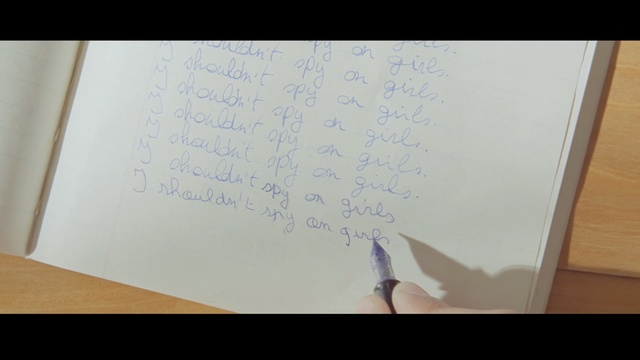 shouldn't spy on girls.
I shouldn't spy on girls.
I shouldn't spy on girls.
I shouldn't spy on girls.
I shouldn't spy on girls.
I shouldn't spy on girls.
I shouldn't spy on girls
I shouldn't spy on girls